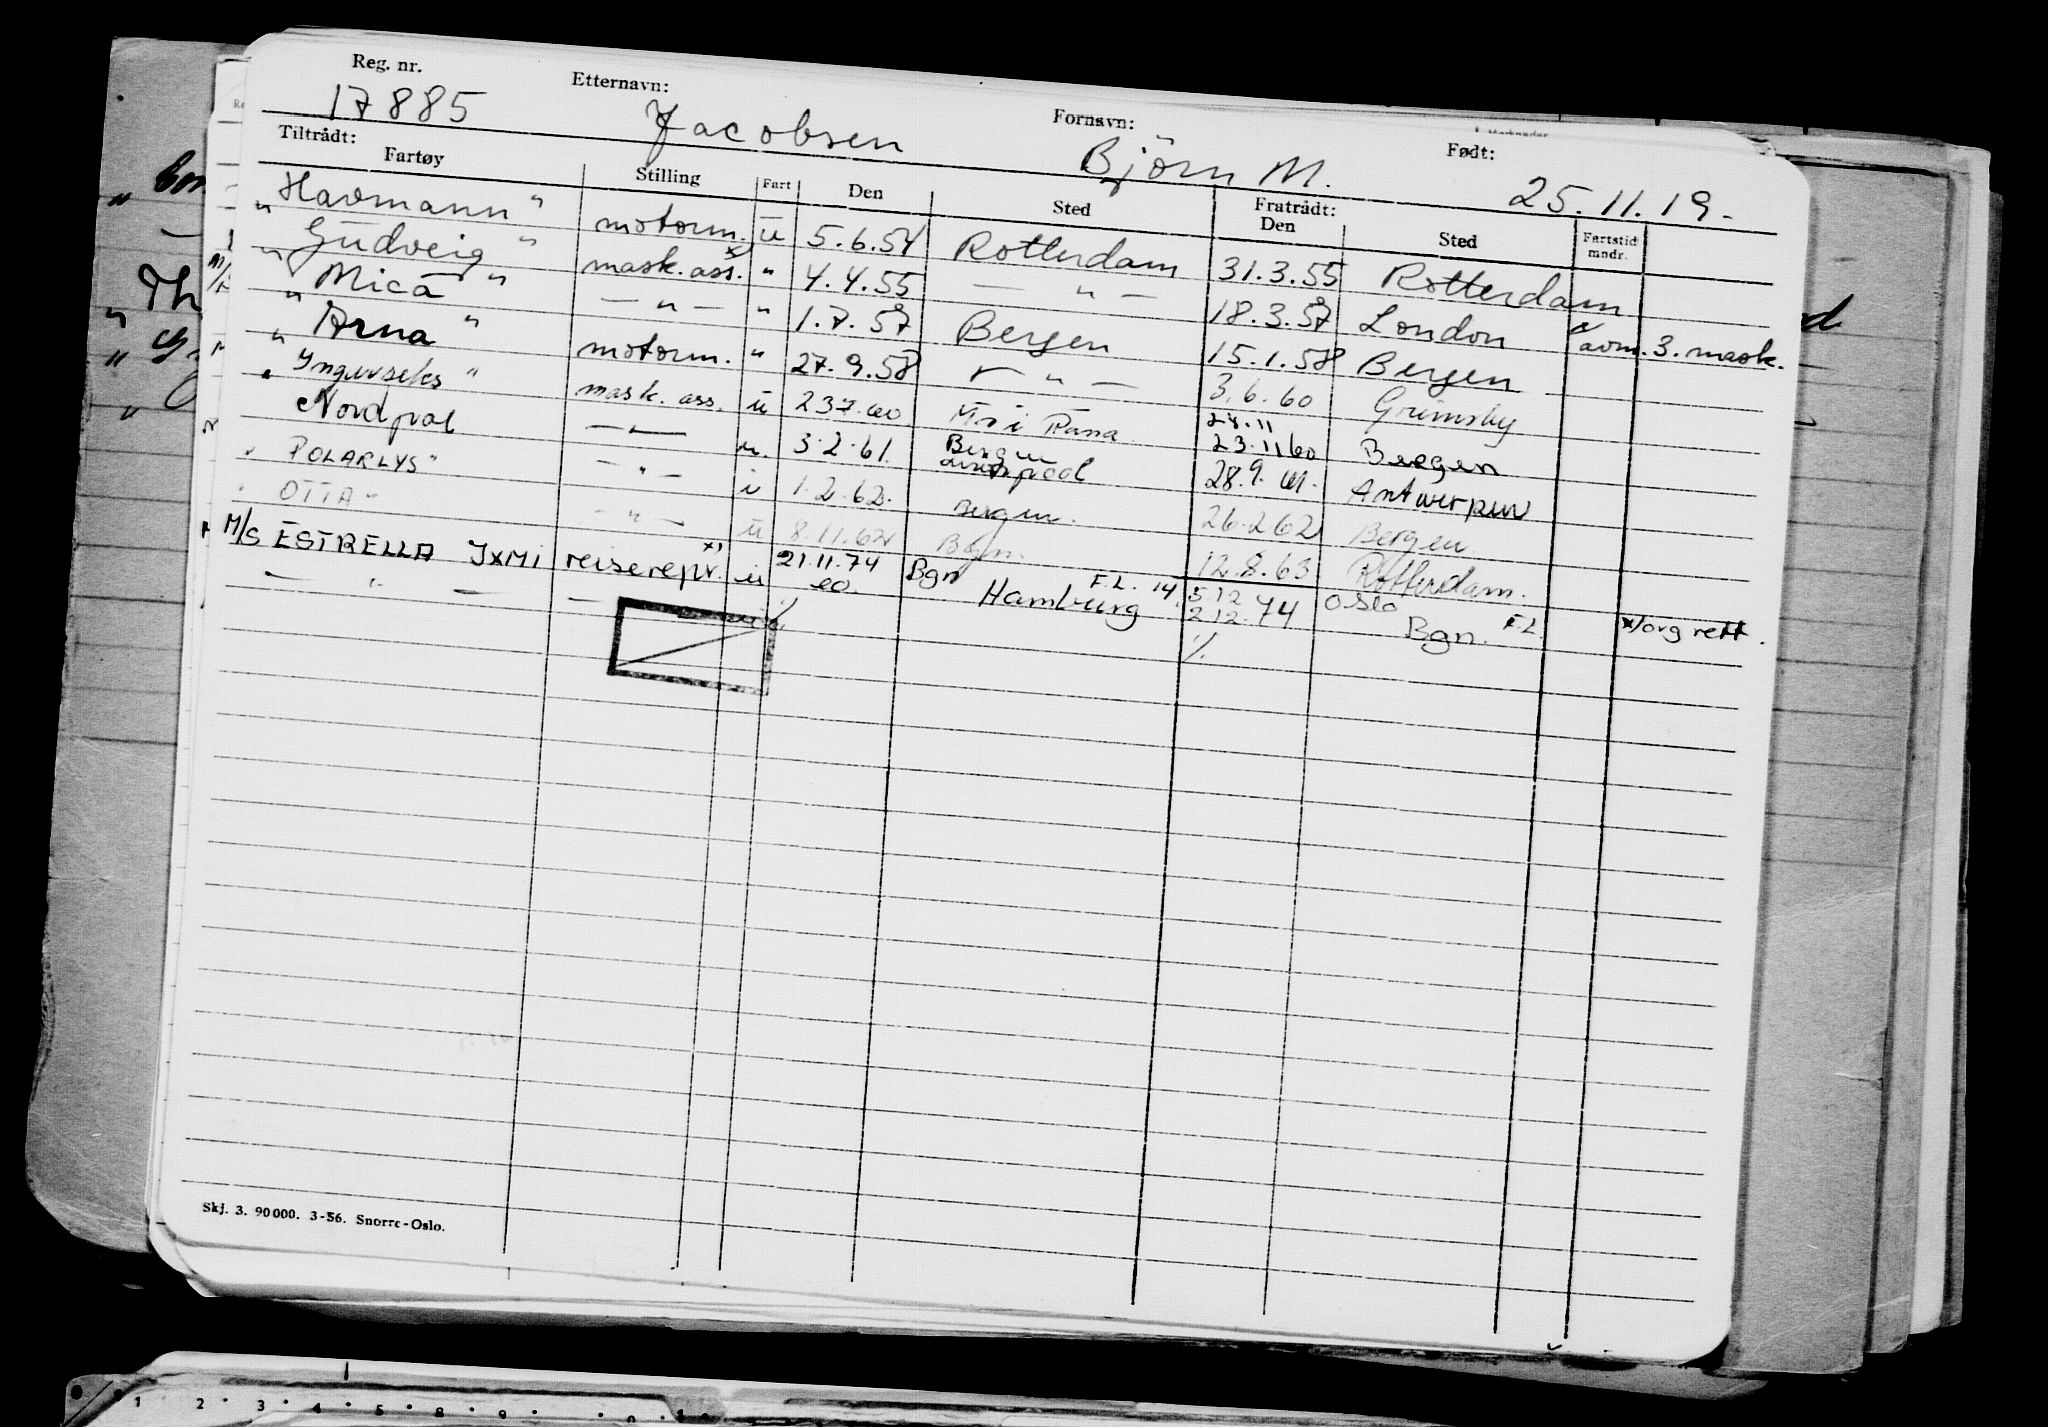 Reg. nr. Etternavn: Fornavn: Født:
17885 Jacobsen Björn M. 25.11.19.
Tiltrådt: Fratrådt:
Fartøy Stilling Fart Den Sted Den Sted Fartstid mndr.
"Havmann" motorm. u 5.6.54 Rotterdam 31.3.55 Rotterdam
"Gudveig" mask. ass. x " 4.4.55 — " — 18.3.57 London x/ avm. 3. mask.
"Mica" — " — " 1.7.57 Bergen 15.1.58 Bergen
"Arna" motorm. " 27.9.58 — " — 3.6.60 Grimsby
" " mask. ass. u 23 7. 60 Mo i Rana 24.11 23.11 60 Bergen
Nordpol — " — u. 3.2.61. Bergen Liverpool 28.9. 61. Antwerpen
"POLARLYS" — " — i 1.2.62. Bergen. 26.2 62 Bergen
"OTTA" — " — u 8.11.62 Bgn. 12.8.63 Rotterdam.
M/S ESTRELLA JXMI reiserepr. x) u 21.11.74 Bgn F.L. 14. 5.12 Oslo F.L. x/org rett.
— " — — 20. Hamburg 2.12.74 Bgn.
Skj. 3. 90000. 3-56. Snorre-Oslo.
1 2 3 4 5 8 9